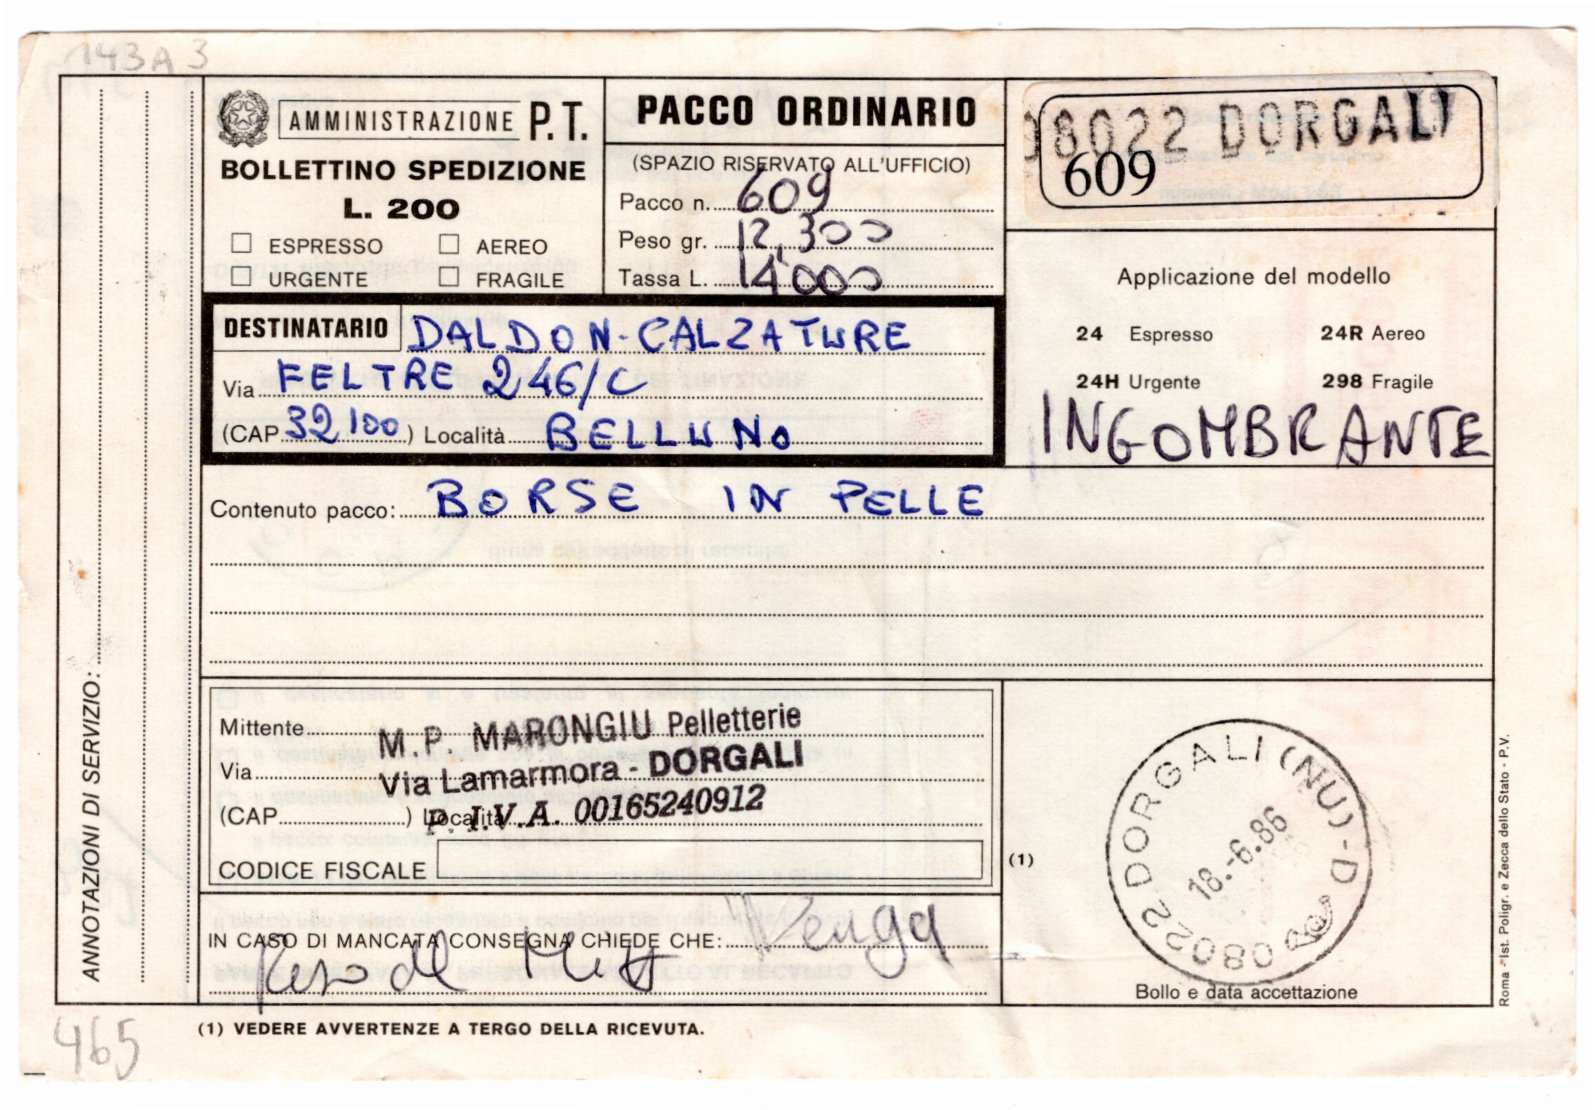 143A 3
AMMINISTRAZIONE P.T.
BOLLETTINO SPEDIZIONE
L. 200
ESPRESSO AEREO
URGENTE FRAGILE
PACCO ORDINARIO
(SPAZIO RISERVATO ALL'UFFICIO)
Pacco n. 609
Peso gr. 12,300
Tassa L. 14'000
08022 DORGALI
609
Applicazione del modello
24 Espresso 24R Aereo
24H Urgente 298 Fragile
INGOMBRANTE
DESTINATARIO DALDON-CALZATURE
Via FELTRE 246/C
(CAP 32100) Località BELLUNO
Contenuto pacco: BORSE IN PELLE
ANNOTAZIONI DI SERVIZIO:
Mittente M.P. MARONGIU Pelletterie
Via Via Lamarmora - DORGALI
(CAP ) Località P. I.V.A. 00165240912
CODICE FISCALE
IN CASO DI MANCATA CONSEGNA CHIEDE CHE: Venga
Reso al Mitt
(1)
08022 DORGALI (NU) - D
18.-6.86
Bollo e data accettazione
Roma - Ist. Poligr. e Zecca dello Stato - P.V.
(1) VEDERE AVVERTENZE A TERGO DELLA RICEVUTA.
465